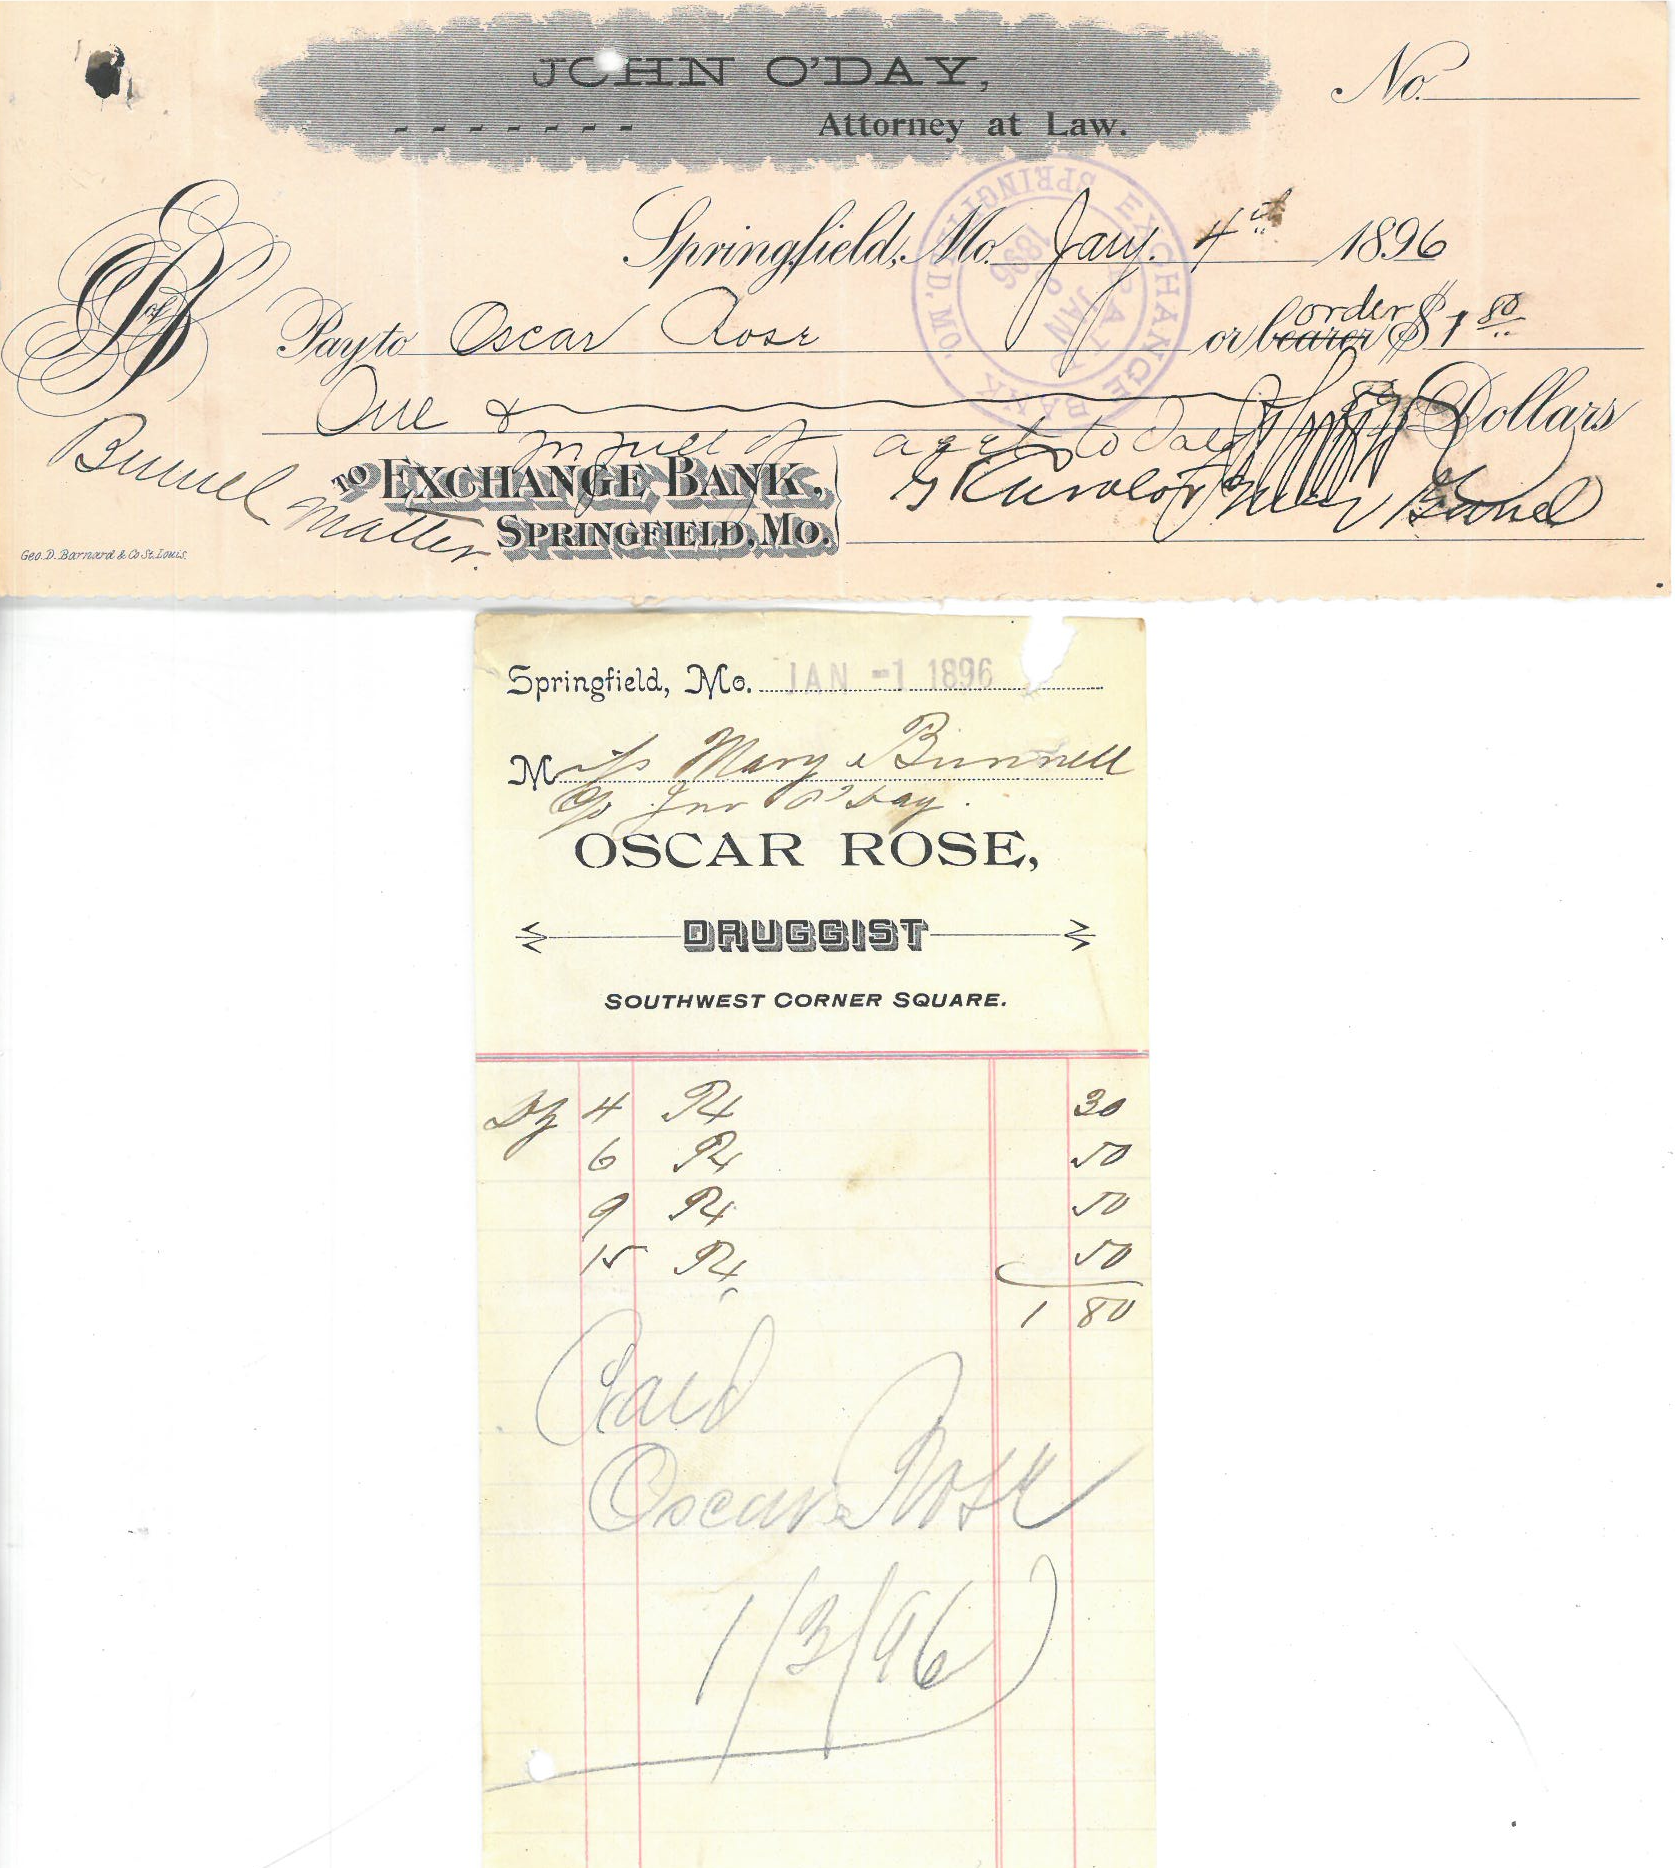 JOHN O'DAY,
Attorney at Law.
No.
Springfield, Mo. Jany. 4th 1896
EXCHANGE BANK SPRINGFIELD, MO.
PAID
JAN 6 1896
Pay to Oscar Rose or bearer order $ 1 80
One & 80 Dollars
in full of acct to date
Bunnel matter.
TO EXCHANGE BANK,
SPRINGFIELD, MO.
Geo. D. Barnard & Co St. Louis.
Springfield, Mo. JAN -1 1896
Miss Mary Bunnell
c/o Jno O'Day.
OSCAR ROSE,
DRUGGIST
SOUTHWEST CORNER SQUARE.
4 Rx 30
6 Rx 50
9 Rx 50
15 Rx 50
1 80
Paid
Oscar Rose
1/3/96